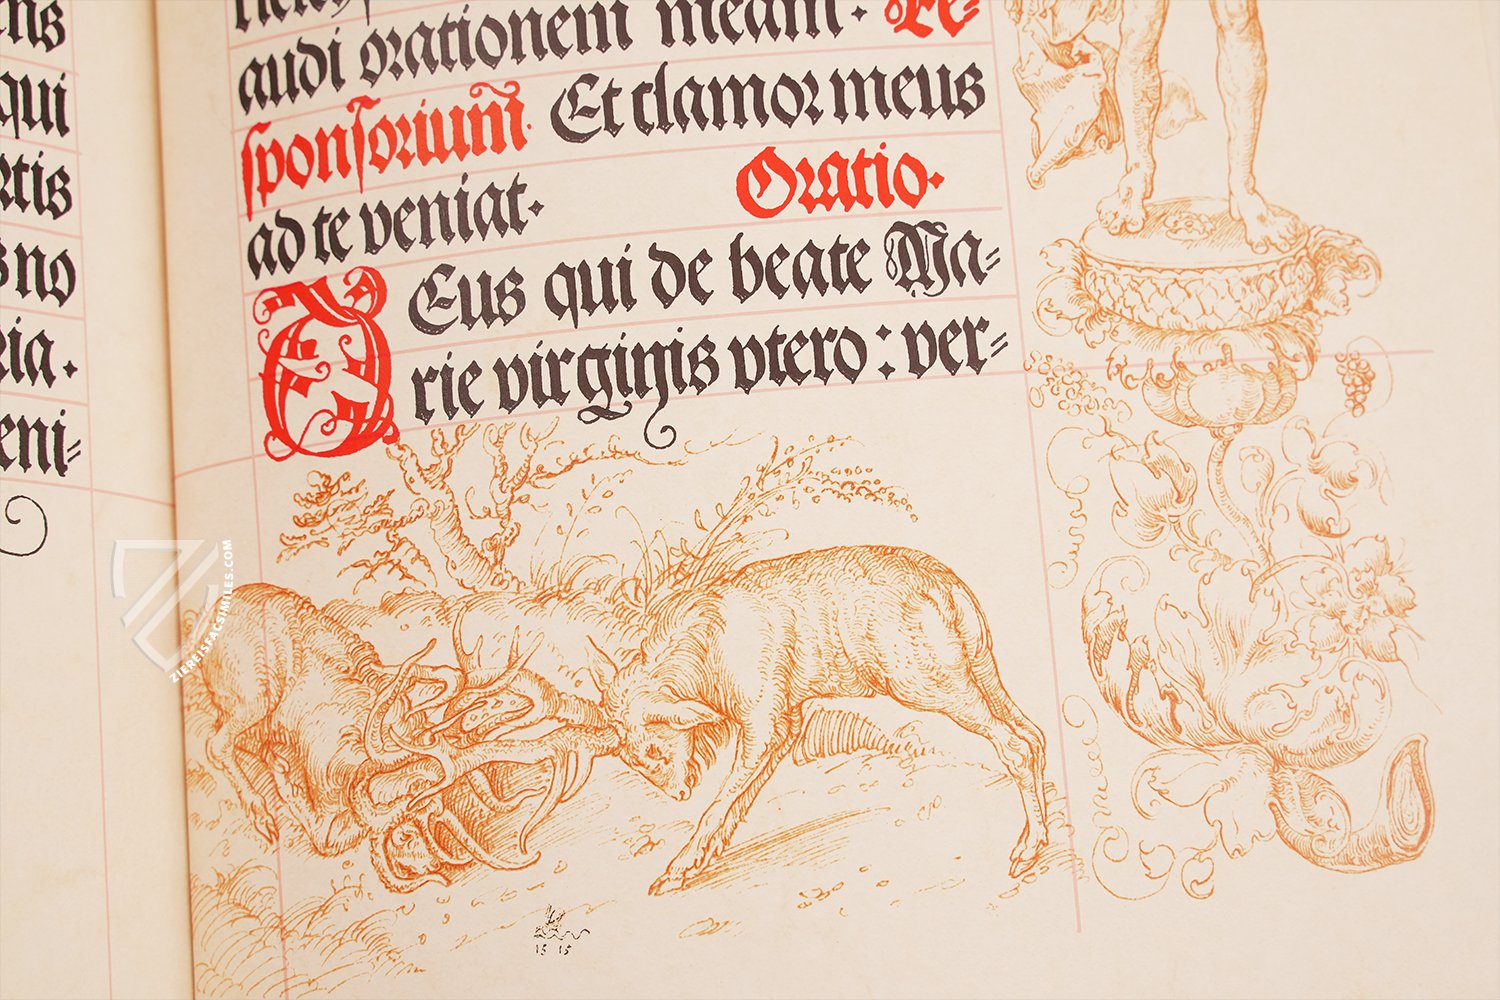 ens
qui
rtis
s no
ria.
eni=
audi orationem meam. Re=
sponsorium. Et clamor meus
ad te veniat. Oratio.
DEus qui de beate Ma=
rie virginis vtero: ver=
1515
ZIEREISFACSIMILES.COM